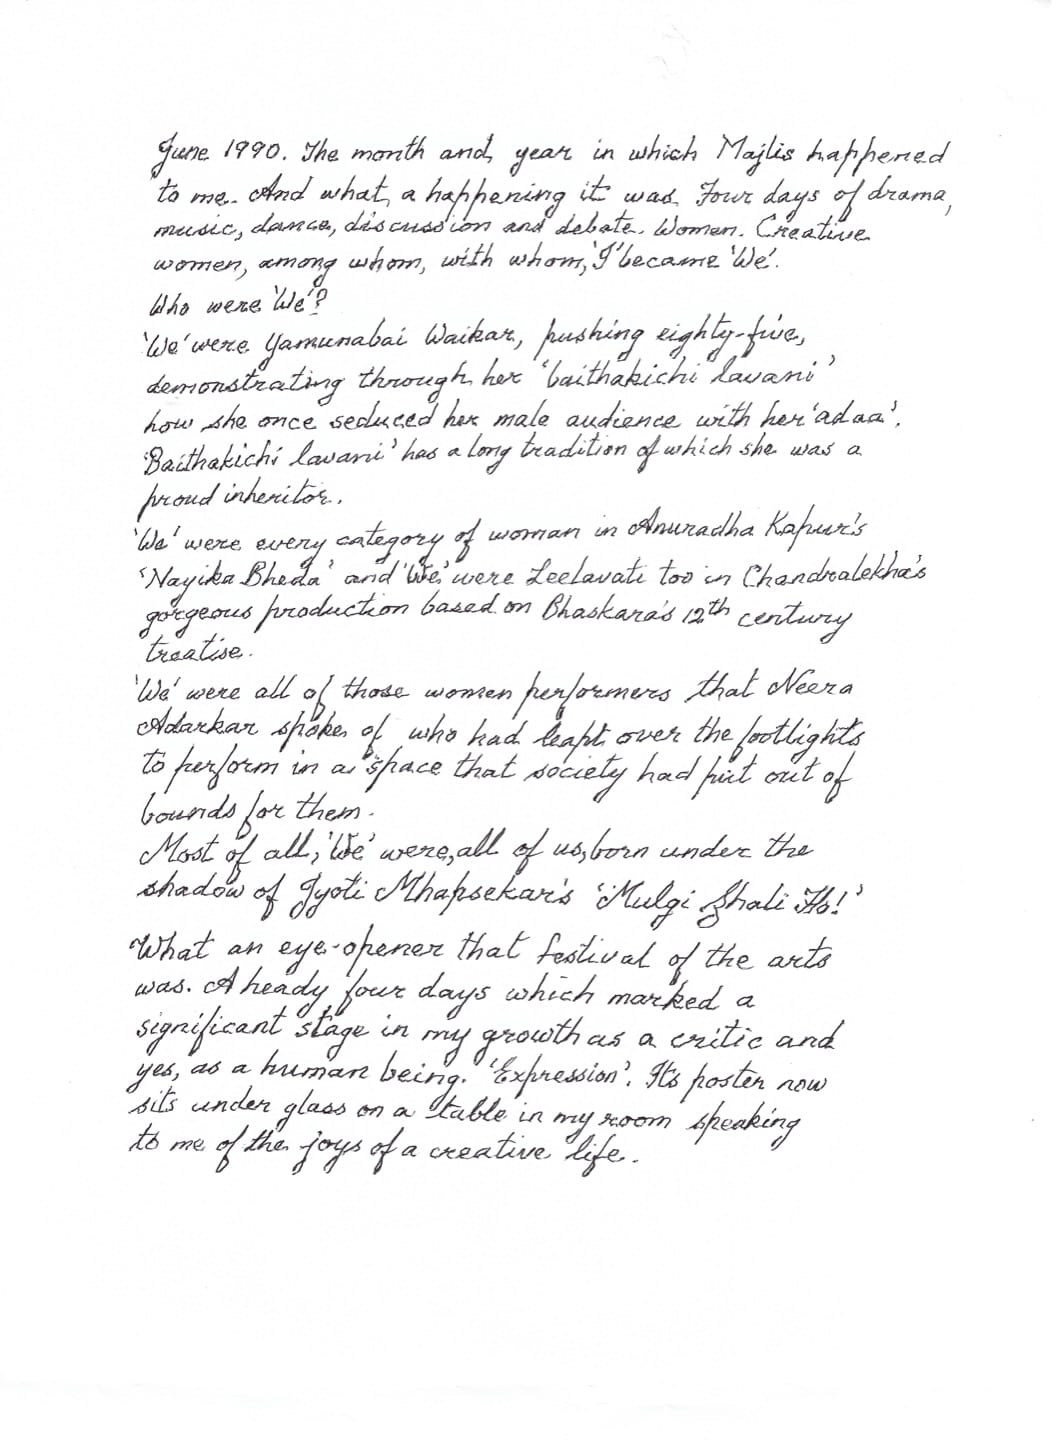 June 1990. The month and year in which Majlis happened
to me. And what a happening it was. Four days of drama,
music, dance, discussion and debate. Women. Creative
women, among whom, with whom, 'I' became 'We'.
Who were 'We'?
'We' were Yamunabai Waikar, pushing eighty-five,
demonstrating through her 'baithakichi lavani'
how she once seduced her male audience with her 'adaa'.
'Baithakichi lavani' has a long tradition of which she was a
proud inheritor.
'We' were every category of woman in Anuradha Kapur's
'Nayika Bheda' and 'We' were Leelavati too in Chandralekha's
gorgeous production based on Bhaskara's 12th century
treatise.
'We' were all of those women performers that Neera
Adarkar spoke of who had leapt over the footlights
to perform in a space that society had put out of
bounds for them.
Most of all, 'We' were, all of us, born under the
shadow of Jyoti Mhapsekar's 'Mulgi Zhali Ho!'
What an eye-opener that festival of the arts
was. A heady four days which marked a
significant stage in my growth as a critic and
yes, as a human being. 'Expression'. It's poster now
sits under glass on a table in my room speaking
to me of the joys of a creative life.